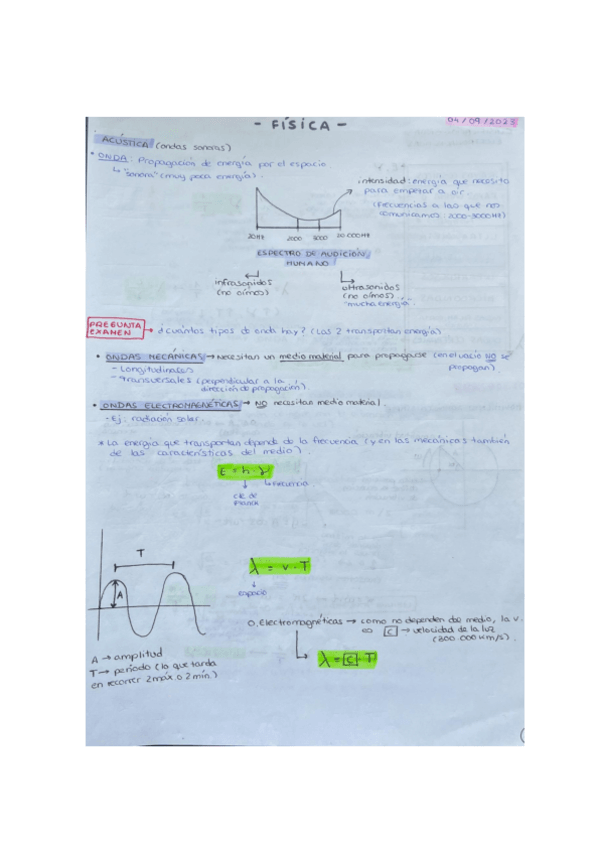 - FÍSICA -
04/09/2023
ACÚSTICA (ondas sonoras)
• ONDA: Propagación de energía por el espacio.
↳ "sonora" (muy poca energía).
intensidad: energía que necesito
para empezar a oir.
(Frecuencias a las que nos
comunicamos: 2000-3000Hz)
20Hz 2000 3000 20.000Hz
ESPECTRO DE AUDICIÓN
HUMANO
infrasonidos
(no oímos)
ultrasonidos
(no oímos)
"mucha energía"
PREGUNTA
EXAMEN
→ ¿Cuántos tipos de onda hay? (Las 2 transportan energía)
• ONDAS MECÁNICAS → Necesitan un medio material para propagarse (en el vacío NO se
propagan)
- Longitudinales
- Transversales (perpendicular a la
dirección de propagación).
• ONDAS ELECTROMAGNÉTICAS → NO necesitan medio material.
- Ej: radiación solar.
* La energía que transportan depende de la frecuencia (y en las mecánicas también
de las características del medio).
E = h · γ
↳ frecuencia.
cte de
Planck
T
A
λ = v · T
espacio
O. Electromagnéticas → como no dependen del medio, la v.
es C → velocidad de la luz
(300.000 Km/s).
λ = C · T
A → amplitud
T → período (lo que tarda
en recorrer 2 máx. o 2 mín.)